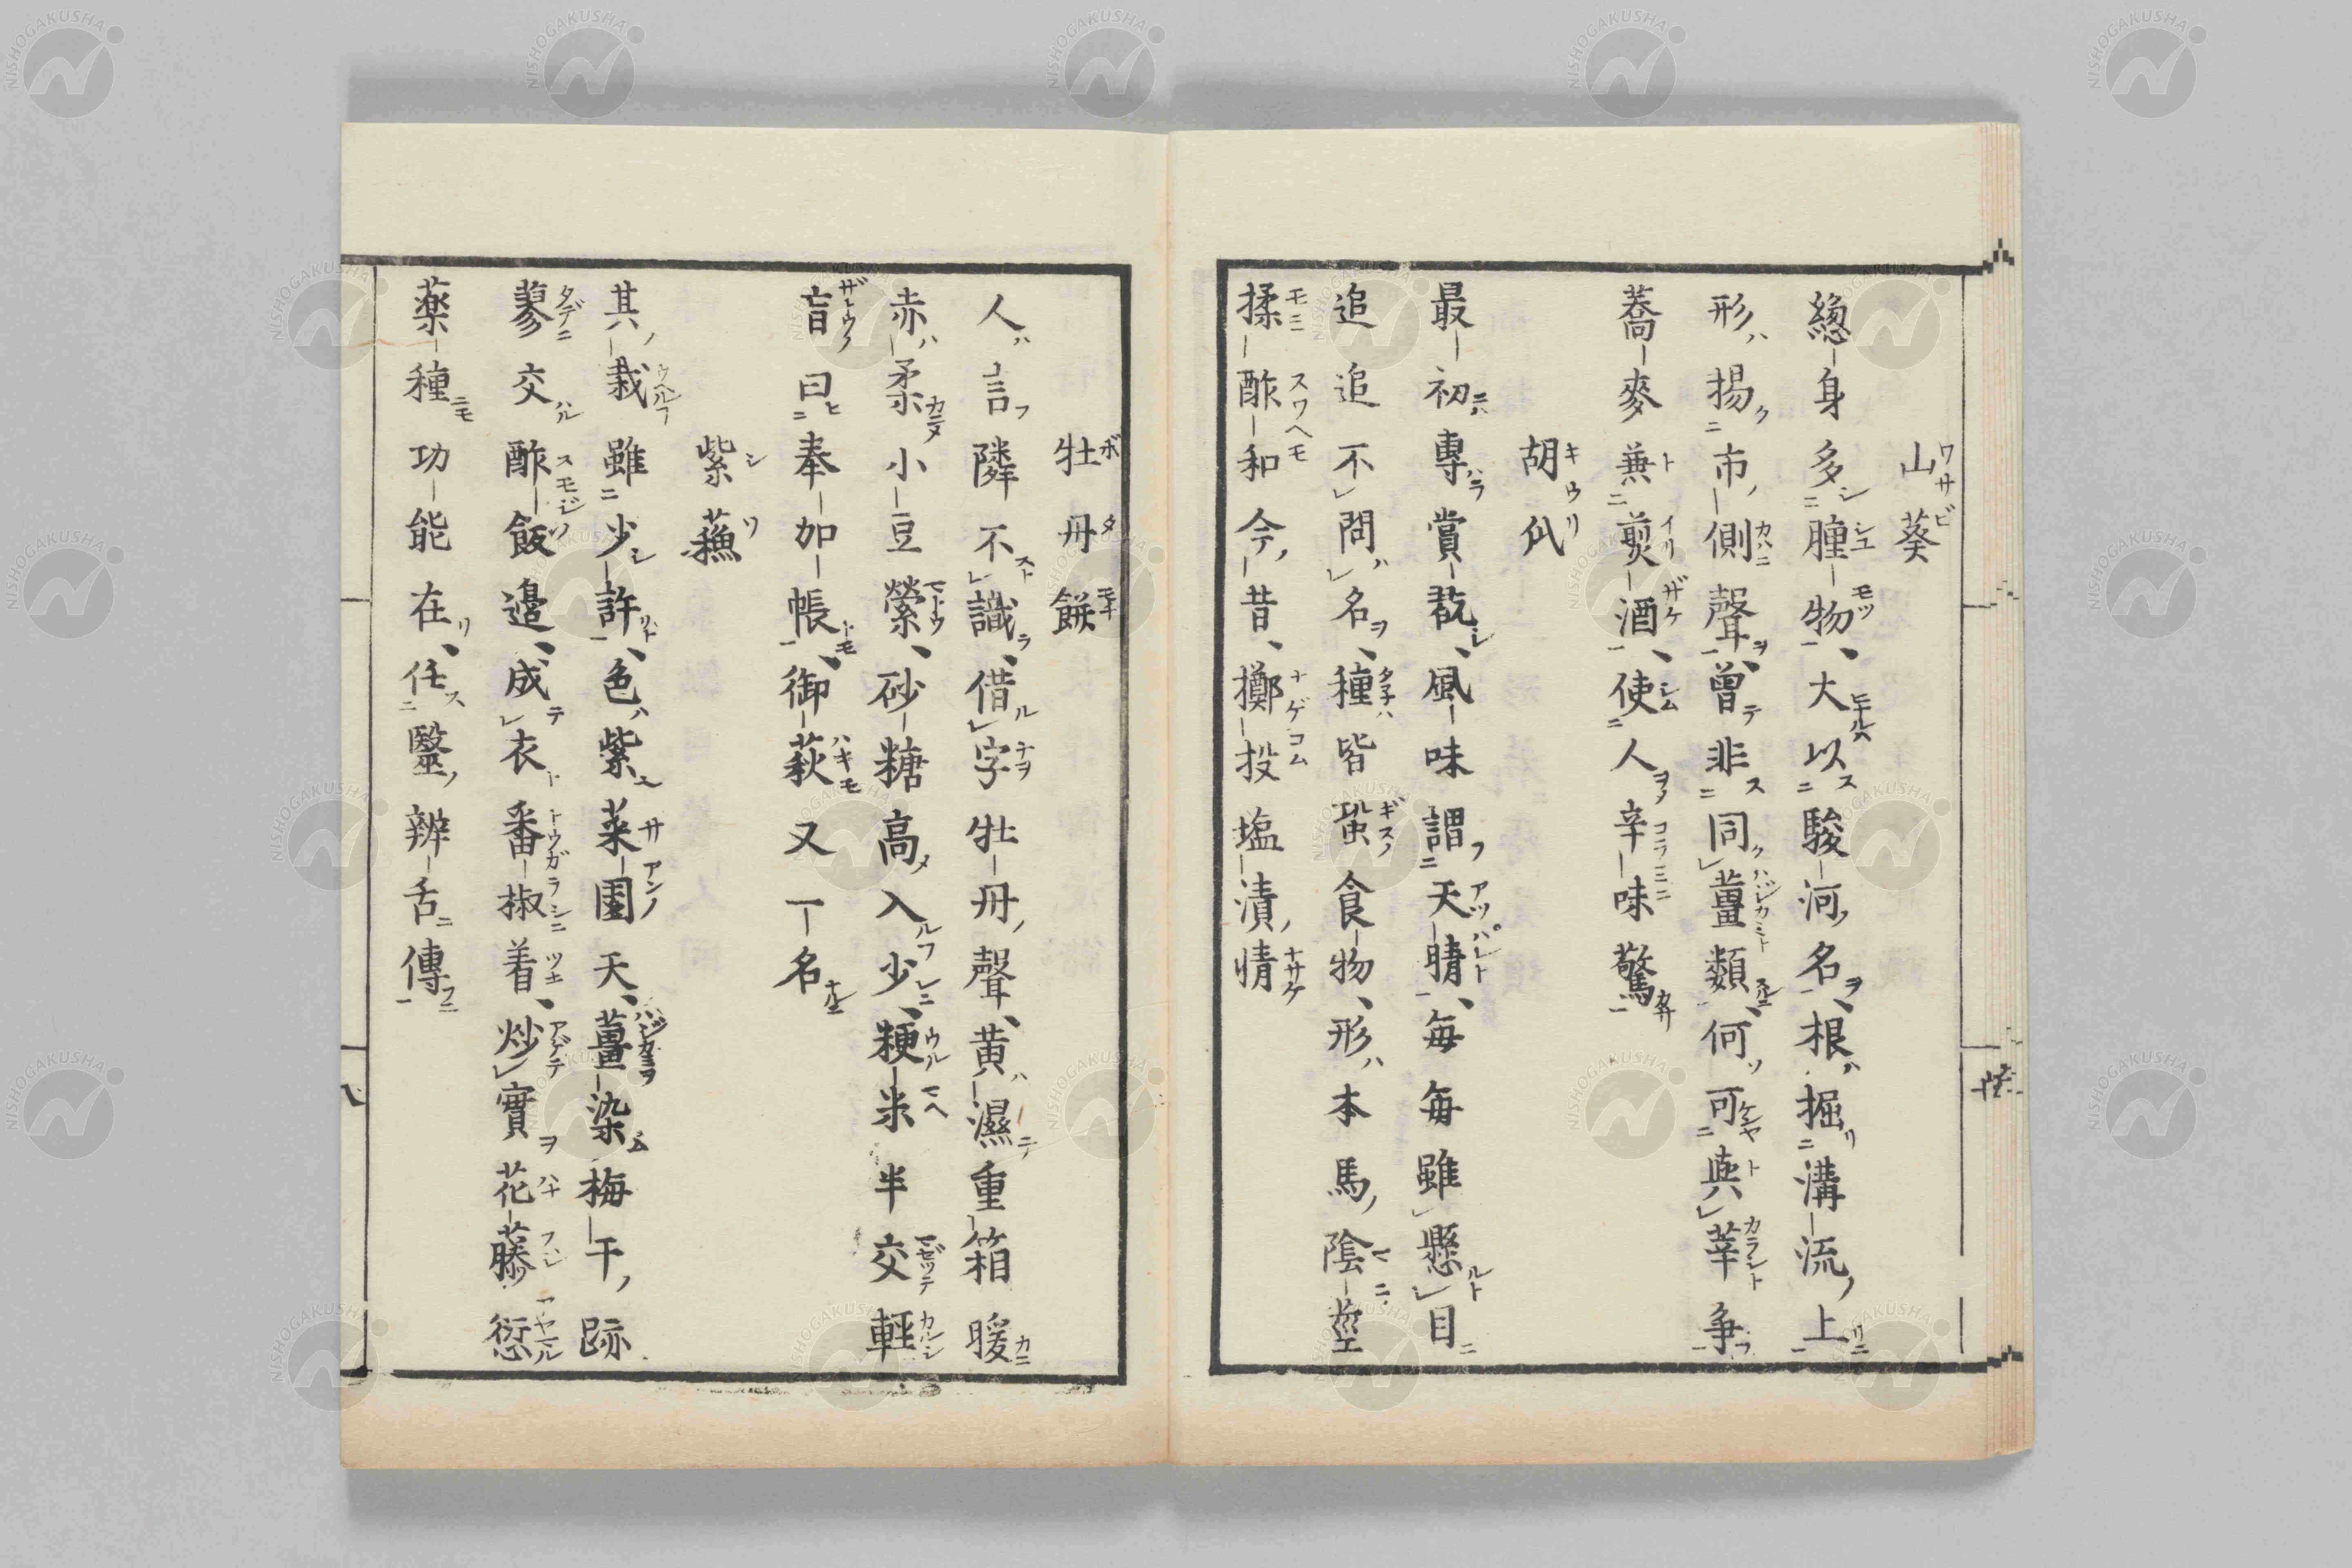 山葵
緫身多腫物、大以駿河名、根掘溝流上
形揚市側聲、曾非同薑類、何可與莘争
蕎麥兼煎酒、使人辛味驚
胡瓜
最初專賞翫、風味謂天晴、毎毎雖懸目
追追不問名、種皆蛩食物、形本馬陰莖
揉酢和今昔、擲投塩漬情
牡丹餅
人言隣不識、借字牡丹聲、黄濕重箱暖
赤柔小豆縈、砂糖高入少、粳米半交輕
盲曰奉加帳、御萩又一名
紫蘓
其栽雖少許、色紫菜園天、薑染梅干跡
蓼交酢飯邉、成衣番椒着、炒實花藤愆
薬種功能在、任醫辨舌傳
NISHOGAKUSHA